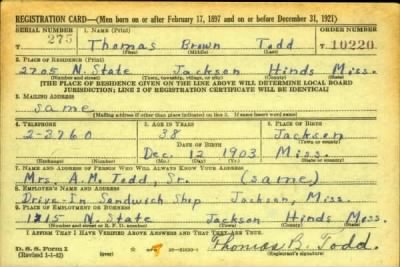 REGISTRATION CARD—(Men born on or after February 17, 1897 and on or before December 31, 1921)
SERIAL NUMBER 1. NAME (Print) ORDER NUMBER
275 Thomas Brown Todd 10220
(First) (Middle) (Last)
2. PLACE OF RESIDENCE (Print)
2705 N. State Jackson Hinds Miss.
(Number and street) (Town, township, village, or city) (County) (State)
[THE PLACE OF RESIDENCE GIVEN ON THE LINE ABOVE WILL DETERMINE LOCAL BOARD
JURISDICTION; LINE 2 OF REGISTRATION CERTIFICATE WILL BE IDENTICAL]
3. MAILING ADDRESS
same
[Mailing address if other than place indicated on line 2. If same insert word same]
4. TELEPHONE 5. AGE IN YEARS 6. PLACE OF BIRTH
2-3760 38 Jackson
DATE OF BIRTH (Town or county)
Dec. 12 1903 Miss.
(Exchange) (Number) (Mo.) (Day) (Yr.) (State or country)
7. NAME AND ADDRESS OF PERSON WHO WILL ALWAYS KNOW YOUR ADDRESS
Mrs. A. M. Todd, Sr. (same)
8. EMPLOYER'S NAME AND ADDRESS
Drive-In Sandwich Shop Jackson, Miss.
9. PLACE OF EMPLOYMENT OR BUSINESS
1215 N. State Jackson Hinds Miss.
(Number and street or R. F. D. number) (Town) (County) (State)
I AFFIRM THAT I HAVE VERIFIED ABOVE ANSWERS AND THAT THEY ARE TRUE.
D. S. S. Form 1
(Revised 1-1-42) (over)
Thomas B. Todd.
(Registrant's signature)